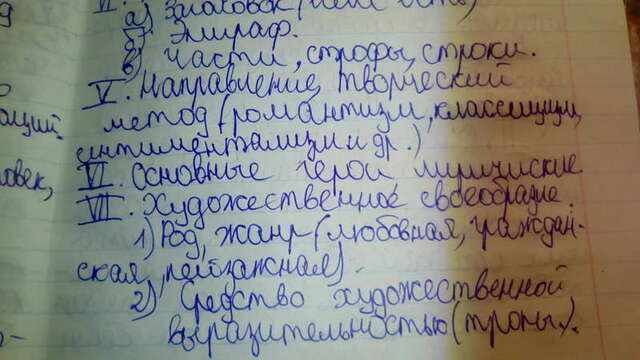 а) Заголовок (если есть)
б) Эпиграф.
в) Части, строфы, строки.
V. Направление, творческий
метод (романтизм, классицизм,
синтиментализм и др.)
VI. Основные герои лирические
VII. Художественное своеобразие.
1) Род, жанр (любовная, граждан-
ская, пейзажная).
2) Средство художественной
выразительностью (тропы).